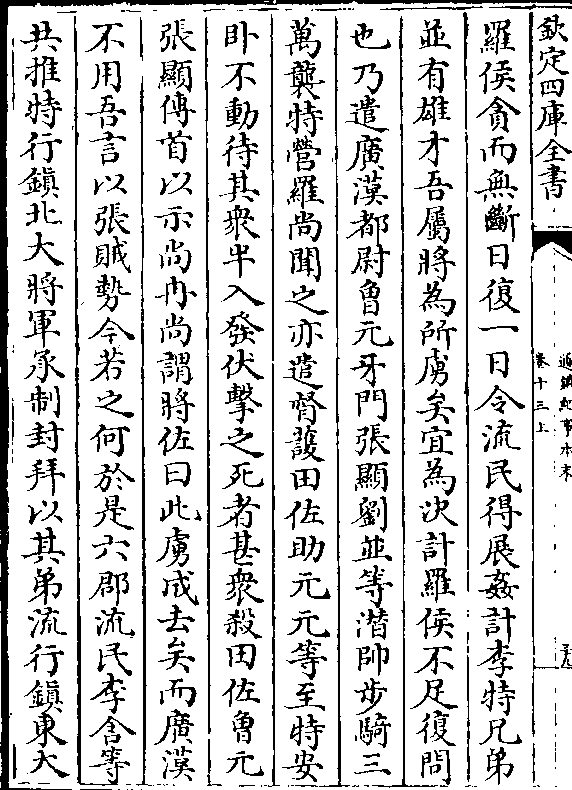 欽定四庫全書
通鑑紀事本末
卷十三上
羅侯貪而無斷日復一日令流民得展姦計李特兄弟
並有雄才吾屬將為所虜矣宜為決計羅侯不足復問
也乃遣廣漢都尉曾元牙門張顯劉並等潛帥步騎三
萬襲特營羅尚聞之亦遣督護田佐助元元等至特安
卧不動待其衆半入發伏擊之死者甚衆殺田佐曾元
張顯傳首以示尚冉尚謂將佐曰此虜成去矣而廣漢
不用吾言以張賊勢今若之何於是六郡流民李含等
共推特行鎮北大將軍承制封拜以其弟流行鎮東大